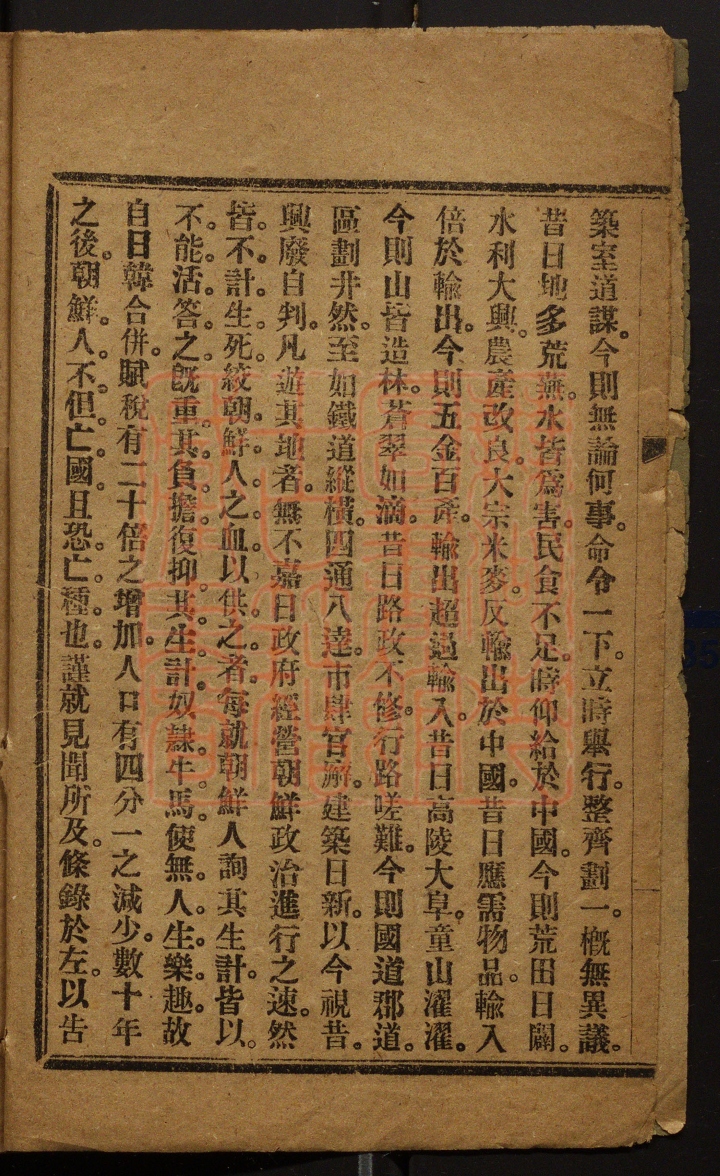 築室道謀。今則無論何事。命令一下。立時舉行。整齊劃一。槪無異議。
昔日地多荒蕪。水皆爲害。民食不足。時仰給於中國。今則荒田日闢。
水利大興。農產改良。大宗米麥。反輸出於中國。昔日應需物品。輸入
倍於輸出。今則五金百產。輸出超過輸入。昔日高陵大阜。童山濯濯。
今則山皆造林。蒼翠如滴。昔日路政不修。行路嗟難。今則國道郡道。
區劃井然。至如鐵道縱橫。四通八達。市肆官廨。建築日新。以今視昔。
興廢自判。凡遊其地者。無不嘉日政府經營朝鮮政治進行之速。然
皆。不。計。生。死。絞。朝。鮮。人。之。血。以。供。之。者。每就朝鮮人詢其生計。皆以。
不。能。活。答。之。旣。重。其。負。擔。復。抑。其。生。計。奴。隸。牛。馬。使。無。人。生。樂。趣。故
自日韓合併。賦稅有二十倍之增加。人口有四分一之減少。數十年
之後。朝鮮。人。不。但。亡。國。且。恐。亡。種。也。謹就見聞所及。條錄於左。以告